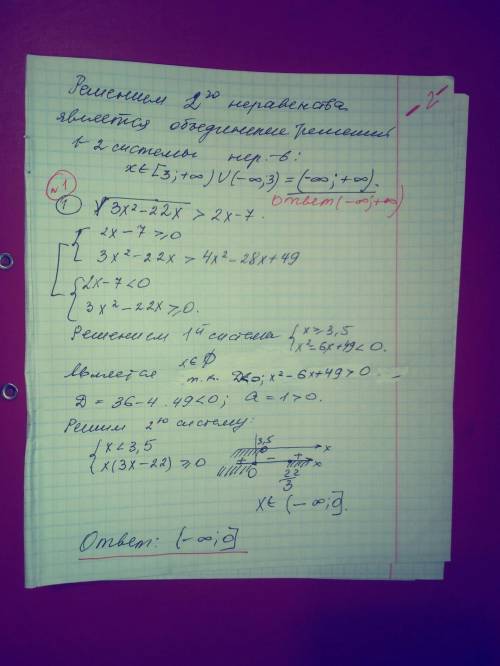 -2-
Решением 2го неравенства
является объединение решений
1-2 системы нер.-в:
x∈[3;+∞)∪(-∞;3)=(-∞;+∞).
Ответ(-∞;+∞)
№1
1 √3x²-22x > 2x-7.
{2x-7≥0
3x²-22x > 4x²-28x+49
{2x-7<0
3x²-22x≥0.
Решением 1й системы {x≥3,5
x²-6x+49<0.
является x∈∅
т.к. D<0; x²-6x+49>0.
D = 36-4·49<0; a=1>0.
Решим 2ю систему:
{x<3,5
x(3x-22)≥0
3,5 x
+ 0 - 22/3 + x
x∈(-∞;0].
Ответ: (-∞;0]